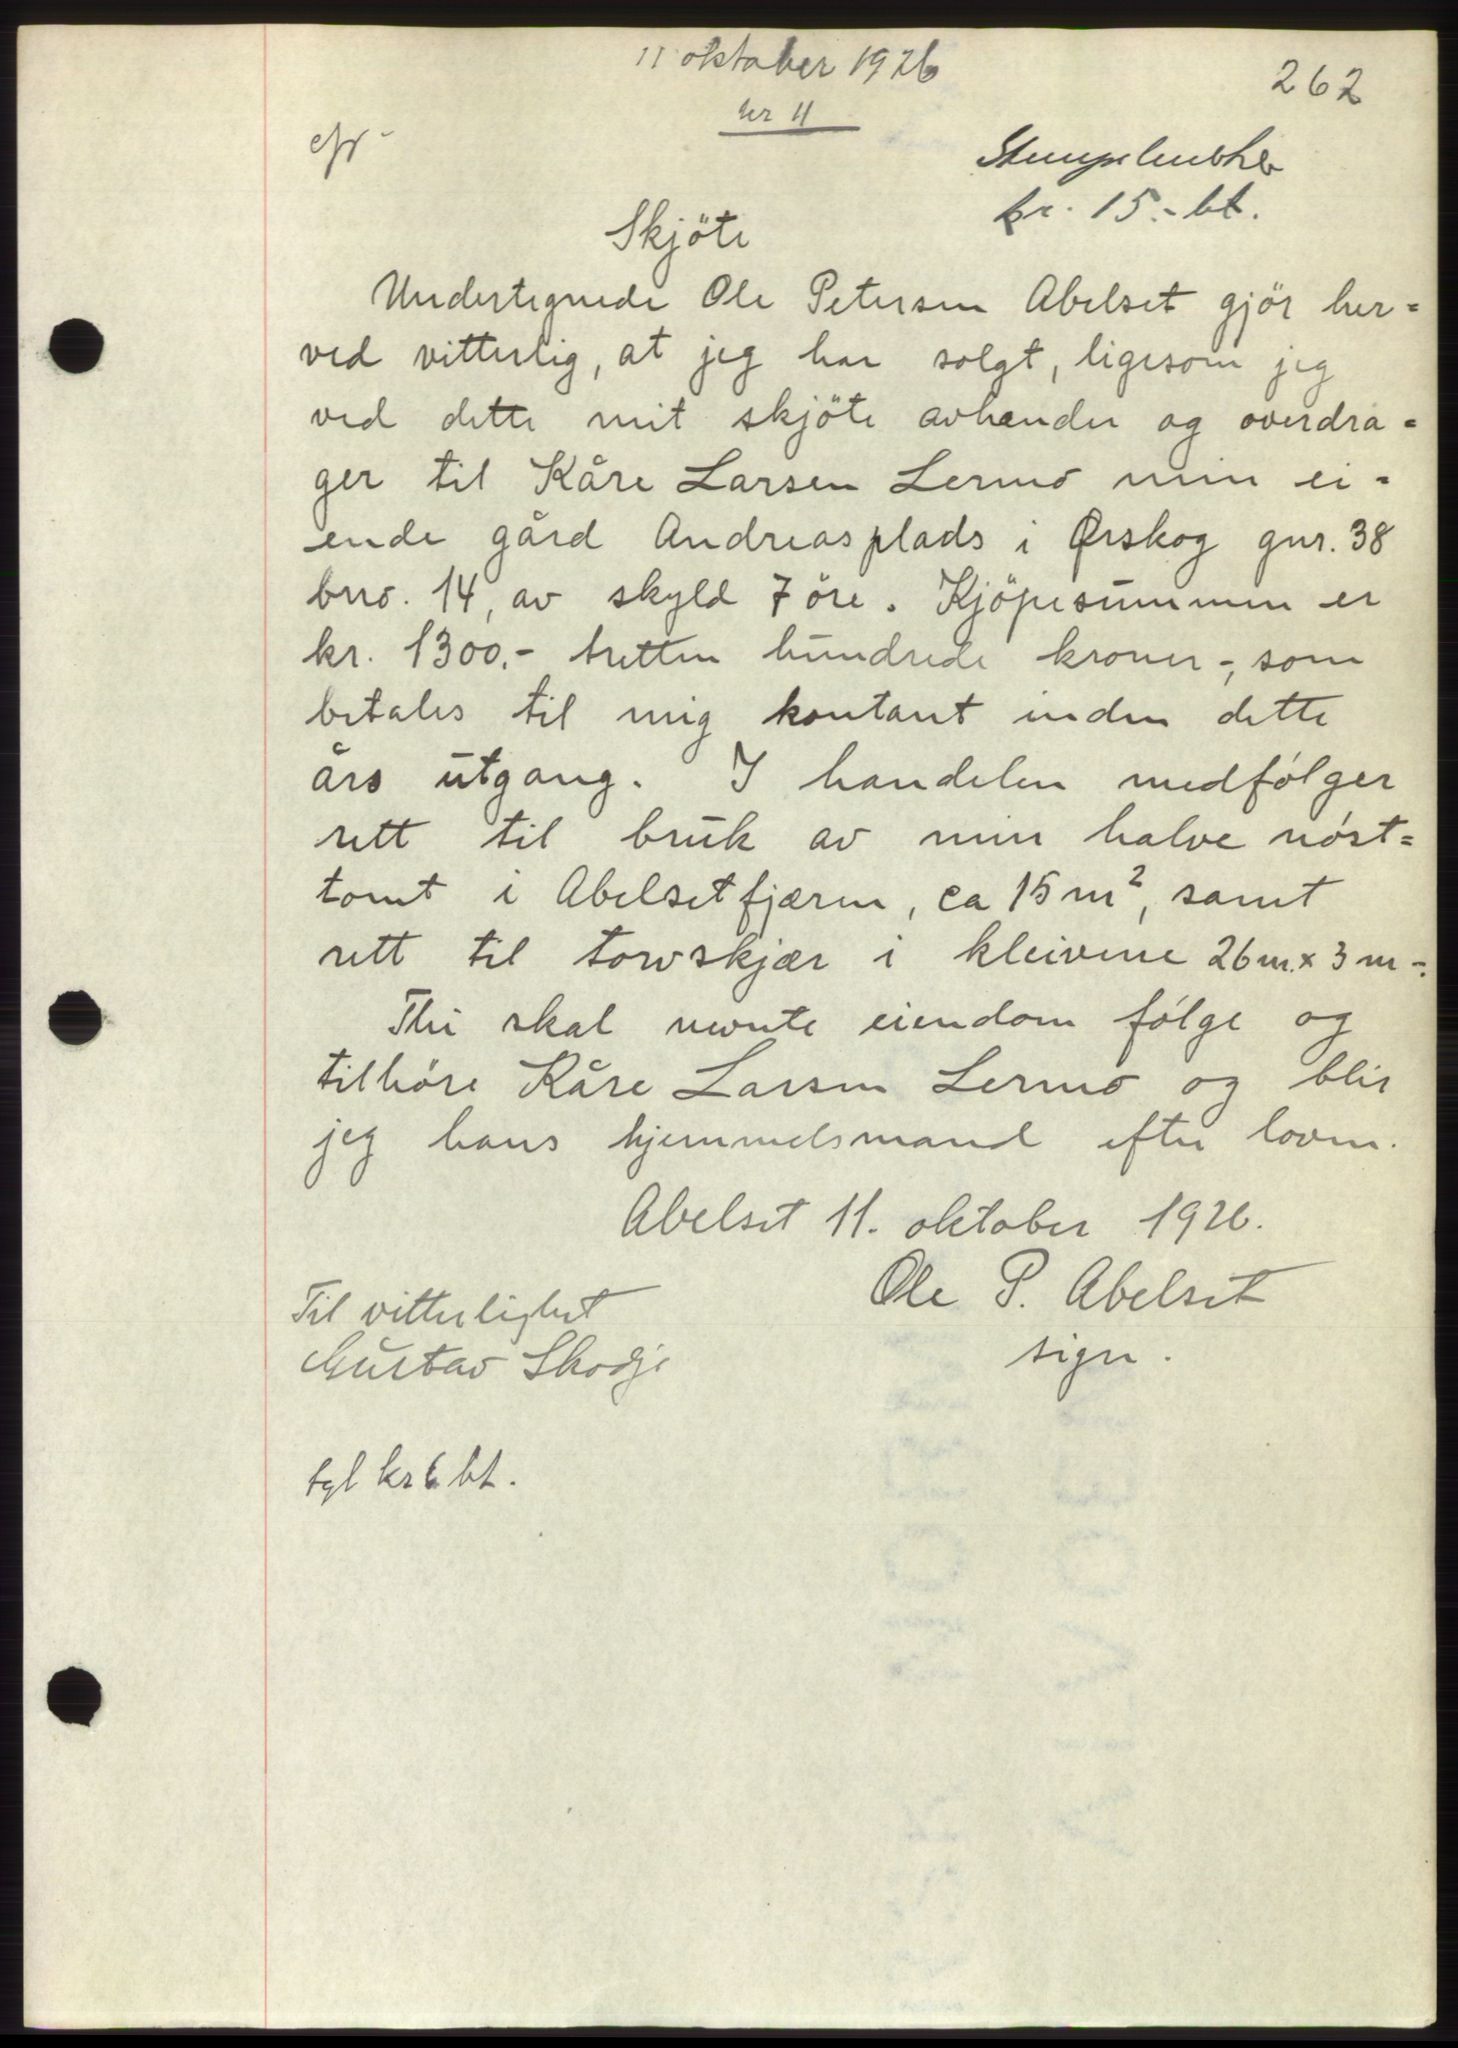 11 oktober 1926
262
nr 11
Skjöte
kr. 15.- bt.
Undertegnede Ole Petersen Abelset gjör her=
ved vitterlig, at jeg har solgt, ligesom jeg
ved dette mit skjöte avhender og overdra=
ger til Kåre Larsen Lermo min ei=
ende gård Andreasplads i Ørskog gnr. 38
bno. 14, av skyld 7 öre. Kjöpesummen er
kr. 1300,- tretten hundrede kroner-, som
betales til mig kontant inden dette
års utgang. I handelen medfölger
rett til bruk av min halve nöst=
tomt i Abelsetfjæren, ca 15 m², samt
rett til torvskjær i kleivene 26 m. x 3 m -.
Thi skal nevnte eiendom fölge og
tilhöre Kåre Larsen Lermo og blir
jeg hans hjemmelsmand efter loven.
Abelset 11. oktober 1926.
Ole P. Abelset
sign.
Til vitterlighet
Gustav Skodje
tgl kr 6 bt.